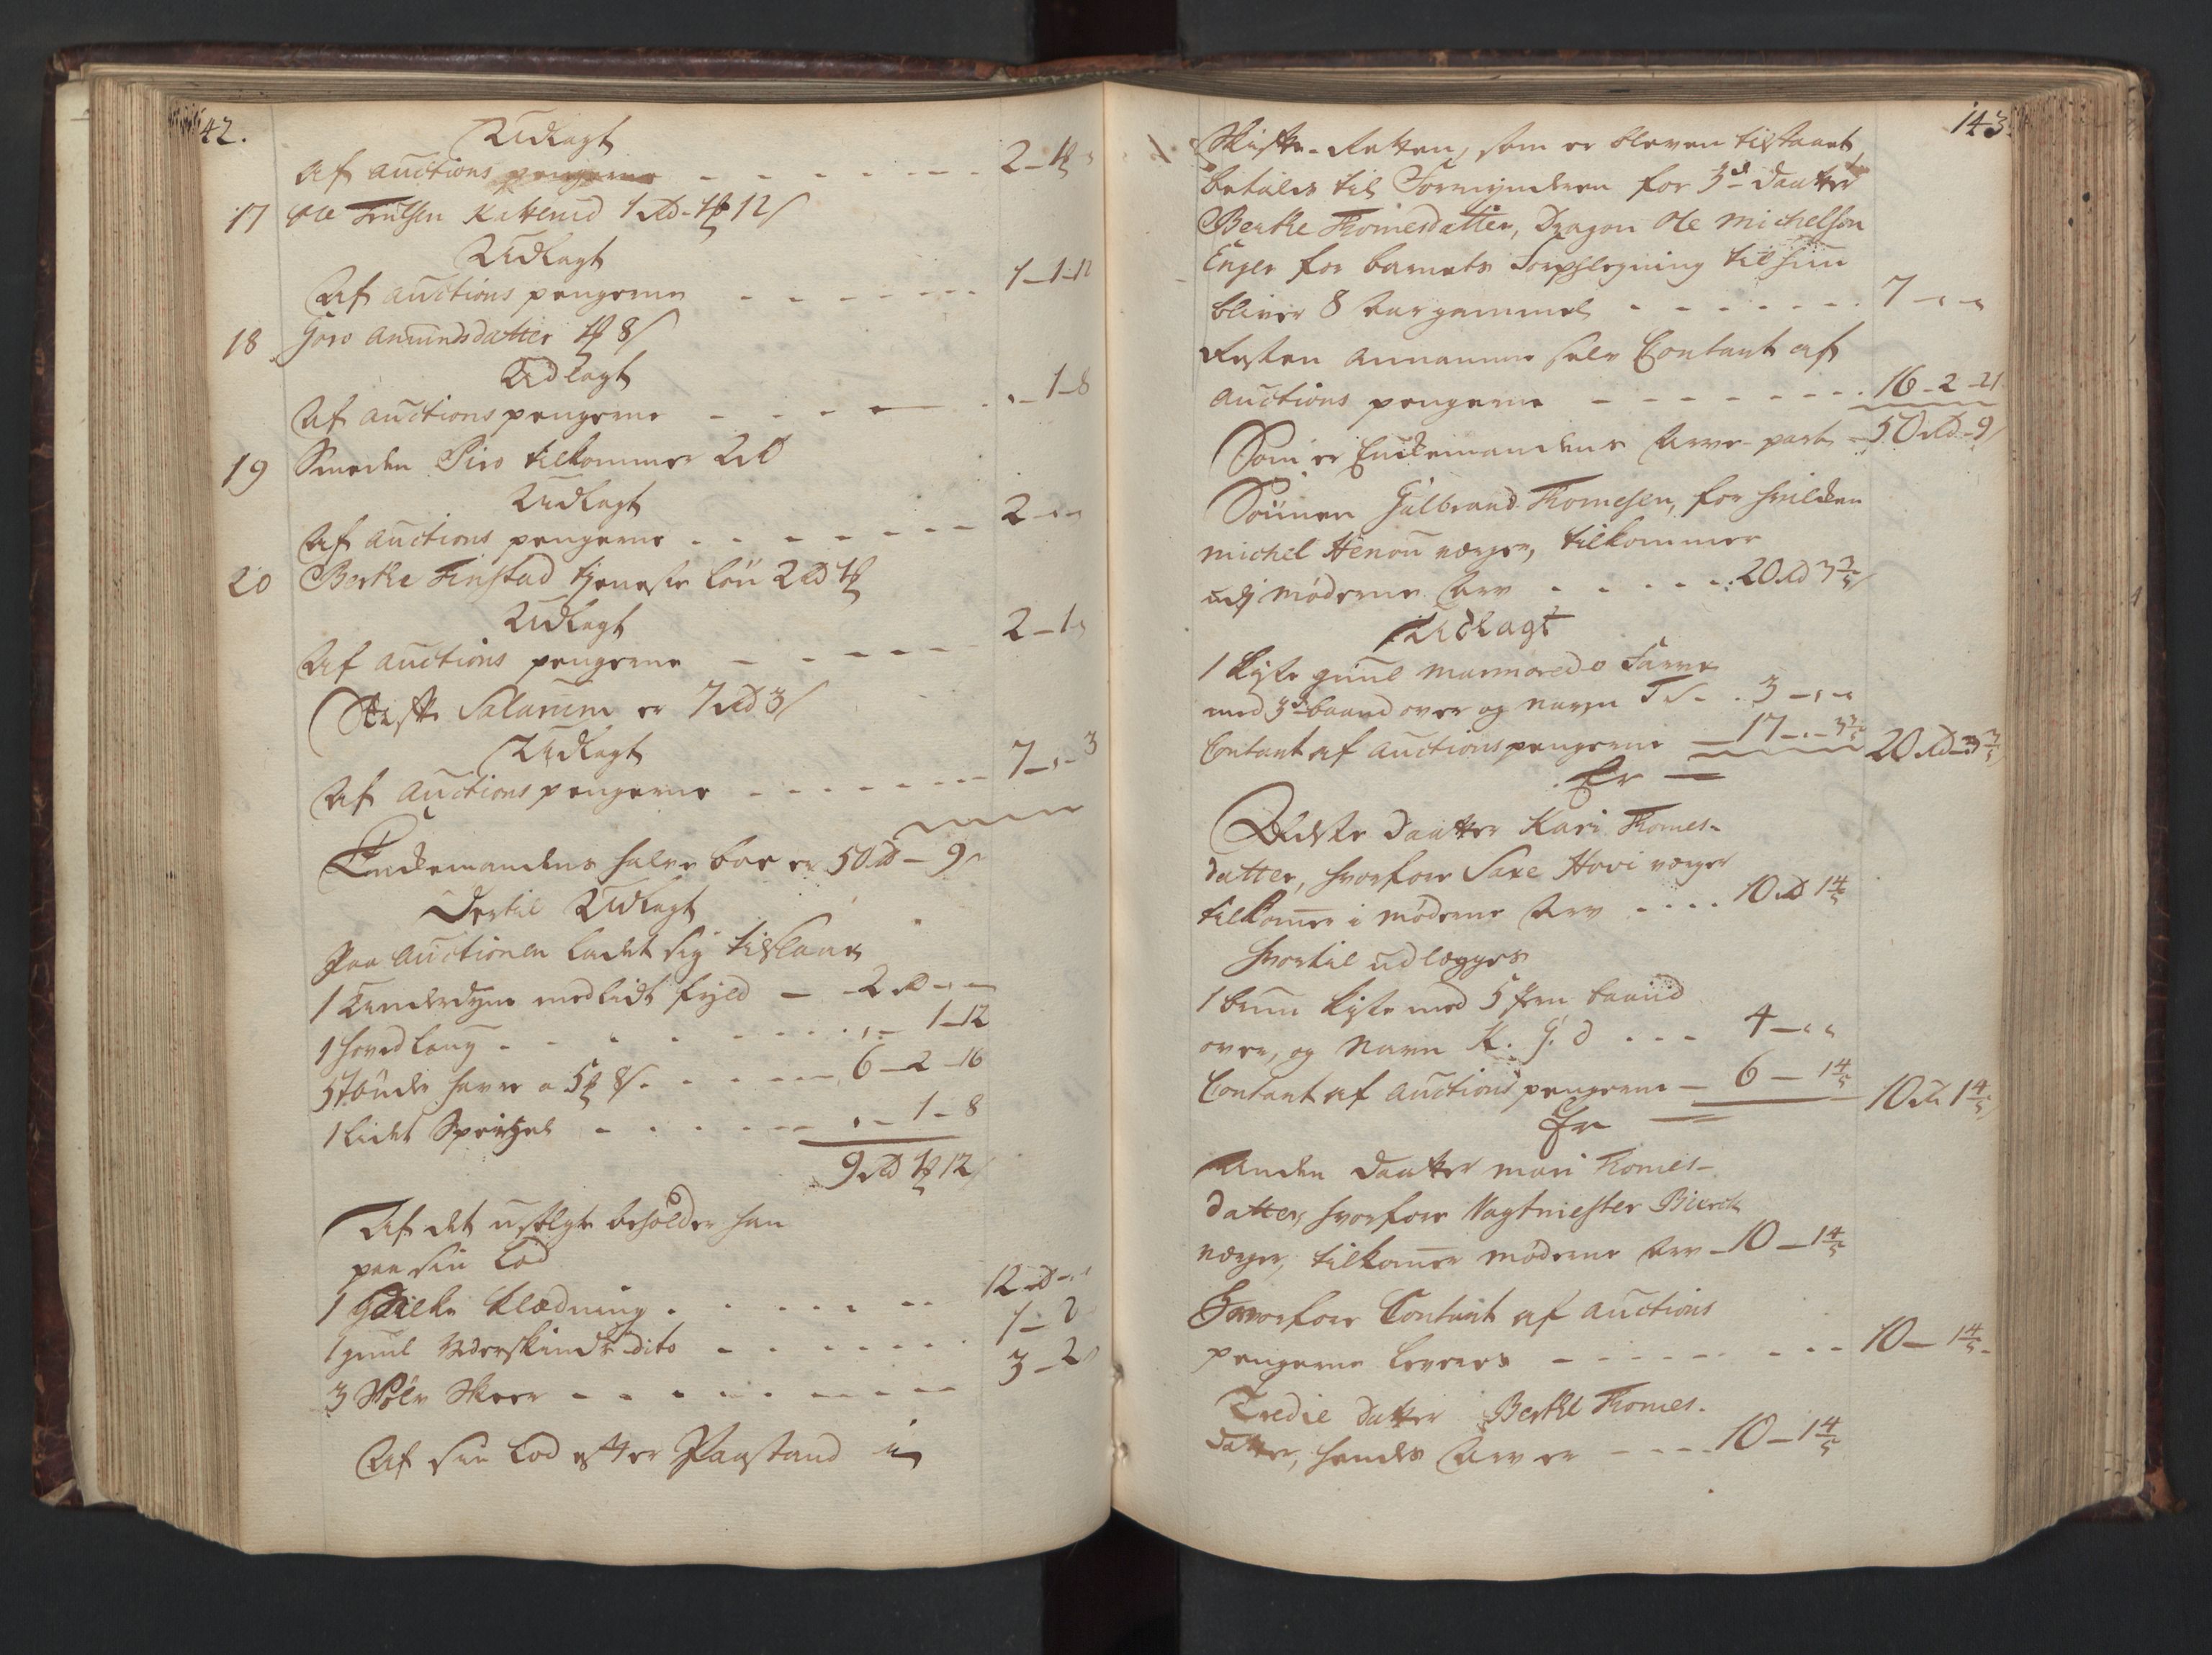 142.
Udlagt
Af auctions pengerne - - - - - - 2-1
17 Ole Trulsen Katterud 1 Rd - 1 12 s
Udlagt
Af auctions pengerne - - - - - - 1-1-12
18 Goro Amundsdatter 1 8 s
Udlagt
Af auctions pengerne - - - - - 1-8
19 Smeden Siro tilkommer 2 Rd
Udlagt
Af auctions pengerne - - - - - - 2 - -
20 Berthe Finstad tjeneste løn 2 Rd 1
Udlagt
Af auctions pengerne - - - - - 2-1-
Skifte Salarium er 7 Rd 3 s
Udlagt
Af auctions pengerne - - - - - - 7 - - 3
Enckemandens halve boe er 50 Rd - 9 s
Dertil Udlagt
Paa auctionen ladet sig tilslaae
1 Underdyne med lidt fyld - 2 Rd - -
1 hoved - - - - - - - 1-12
5 tønder havre a 5 8 s - - - - 6-2-16
1 lidet Speigel - - - - - - 1-8
9 Rd 1 12 s
Af det usolgte beholder han
paa sin Lod
1 klædning - - - - - - 12 Rd - -
1 guul dito - - - - - 1-2
3 Sølv Skeer - - - - - - - 3-2
Af sin Lod efter Paastand i
143.
Skifte-Retten, som er bleven tilstaaet
betales til Formynderen for 3d daatter
Berthe Thomesdatter, Dragon Ole Michelson
Enger for barnets Forpflegning til hun
bliver 8 aar gammel - - - - - - 7 - -
Resten annamme selv Contant af
auctions pengerne - - - - - - - 16-2-21
Som er Enckemandens Arve-part - 50 Rd - 9 s
Sønnen Gulbrand Thomesen, for hvilken
Michel Henou værger, tilkommer
udj møderne Arv - - - - - 20 Rd 3 3/5 s
Udlagt
1 kiste guul marmored Farve
med 3 baand over og navn T S - 3 - -
Contant af auctions pengerne - 17 - - 3 3/5 20 Rd - 3 3/5
Er
Ældste daatter Kari Thomes-
datter, hvorfore Saxe Hovi værger
tilkomer i møderne Arv - - - - 10 Rd 1 4/5
hvortil udlægges
1 bruun kiste med 5 Jern baand
over, og Navn K. G. d - - - 4 - -
Contant af auctions pengerne - 6 - 1 4/5 10 Rd 1 4/5
Er
Anden daatter Mari Thomes-
datter, hvorfore Vagtmester Bierch
værger, tilkomer møderne Arv - 10 - 1 4/5
Hvorfore Contant af auctions
pengerne leveres - - - - - - - 10 - 1 4/5
Tredie datter Berthe Thomes-
datter, hendes Arv er - - - - 10 - 1 4/5